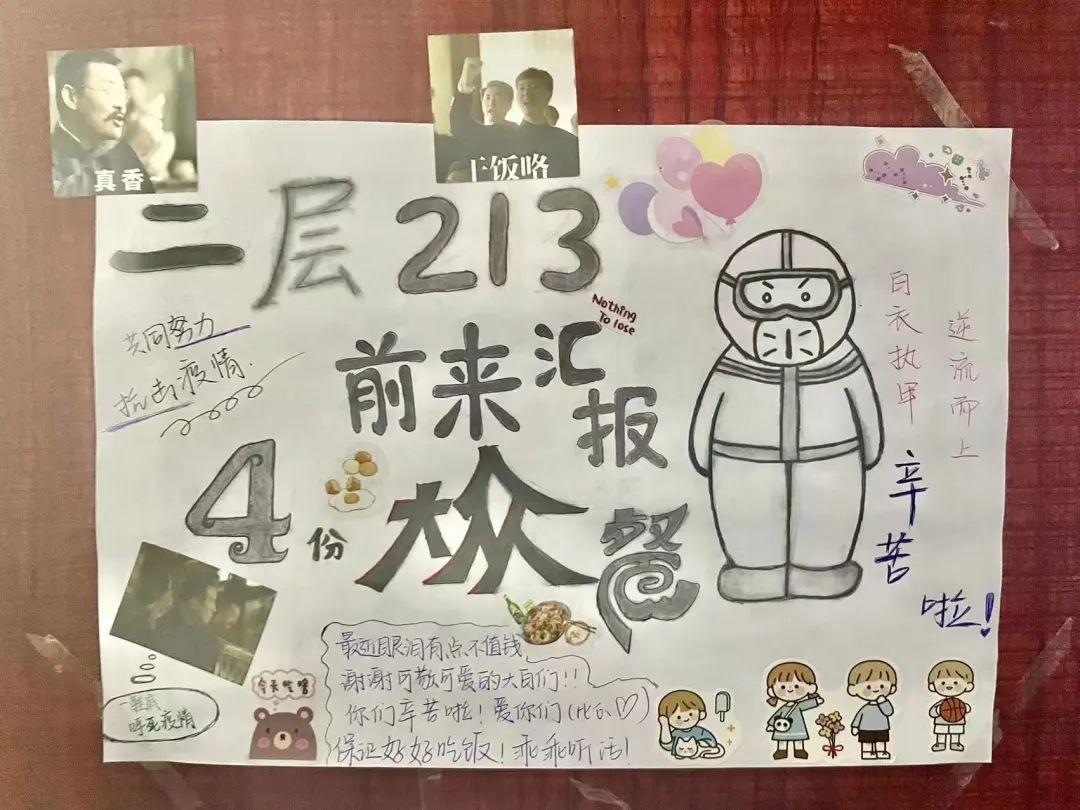 真香
干饭咯
二层213
Nothing
To lose
共同努力
抗击疫情.
前来汇报
4份大众餐
白衣执甲
逆流而上
辛苦啦!
最近眼泪有点不值钱
谢谢可敬可爱的大白们!!
你们辛苦啦!爱你们(比个♡)
保证好好吃饭!乖乖听话!
今天吃啥
一鞋底
呼死疫情